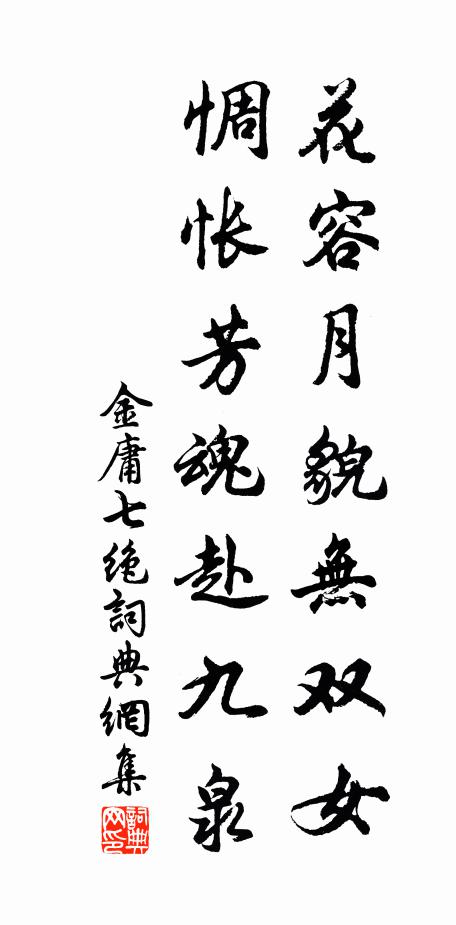 花容月貌無双女
惆怅芳魂赴九泉
金庸七绝詞典網集
詞典网印